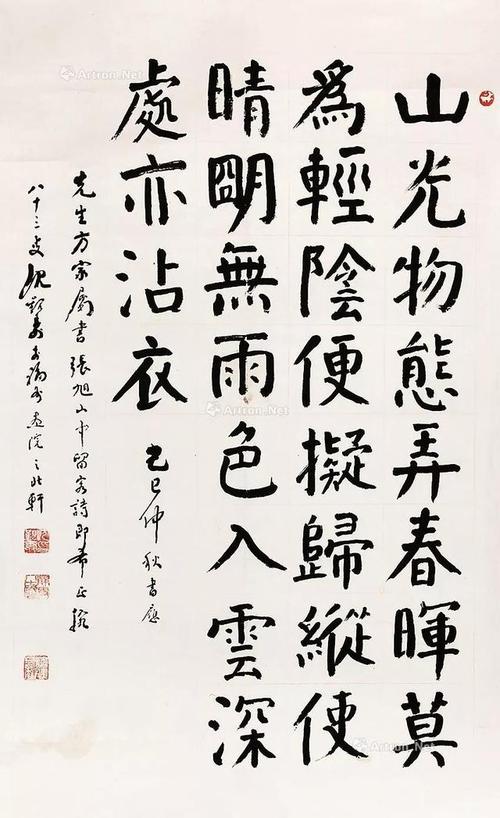 山光物態弄春暉莫
爲輕陰便擬歸縱使
晴朙無雨色入雲深
處亦沾衣
己巳仲秋書應
先生方家屬書張旭山中留客詩即希正腕
八十三叟畫院之北軒
Artron.Net
Artron.Net
Artron.Net
Artron.Net